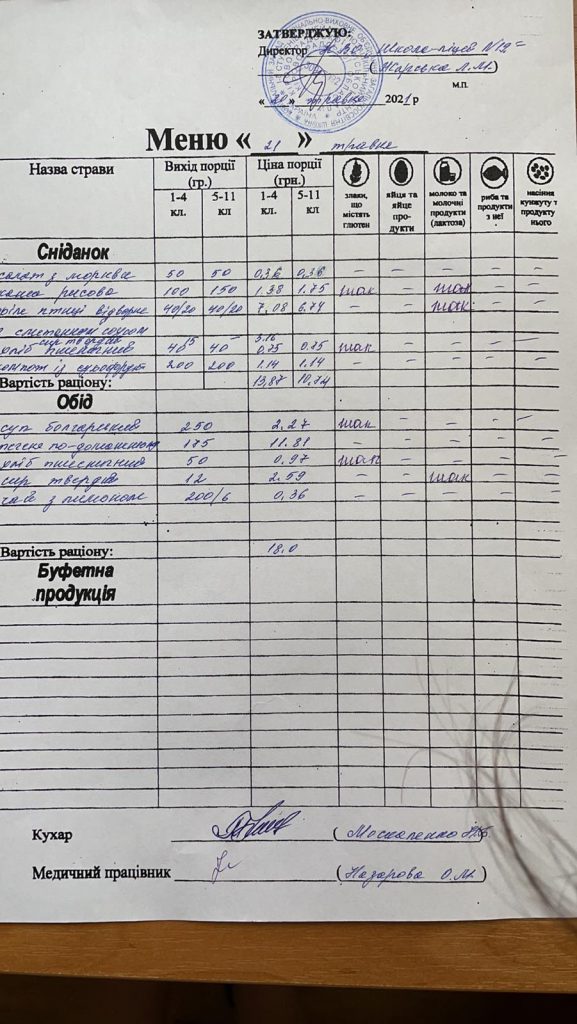 ЗАТВЕРДЖУЮ:
Директор КЗО „Школа-ліцей №19"
(Жарська Л.М.)
м.п.
« 20 » травня 2021 р
Меню « 21 » травня
Назва страви
Вихід порції (гр.)
Ціна порції (грн.)
1-4 кл.
5-11 кл
1-4 кл.
5-11 кл.
злаки, що містять глютен
яйця та яйце продукти
молоко та молочні продукти (лактоза)
риба та продукти з неї
насіння кунжуту т продукту нього
Сніданок
салат з моркви 50 50 0,36 0,36 – – – – –
каша рисова 100 150 1.38 1.75 так – так – –
філе птиці відварне 40/20 40/20 7,08 6.74 – – так – –
з сметанним соусом
сир твердий 15 – 3.16
хліб пшеничний 40 40 0.75 0.75 так – – – –
компот із сухофрукт 200 200 1.14 1.14 – – – – –
Вартість раціону: 13,87 10,74
Обід
суп болгарський 250 2,27 так – – – –
печеня по-домашньому 175 11.81 – – – – –
хліб пшеничний 50 0,97 так – – – –
сир твердий 12 2.59 – – так – –
чай з лимоном 200/6 0,36 – – – – –
Вартість раціону: 18,0
Буфетна продукція
Кухар ( Москаленко )
Медичний працівник ( Назарова О.М. )